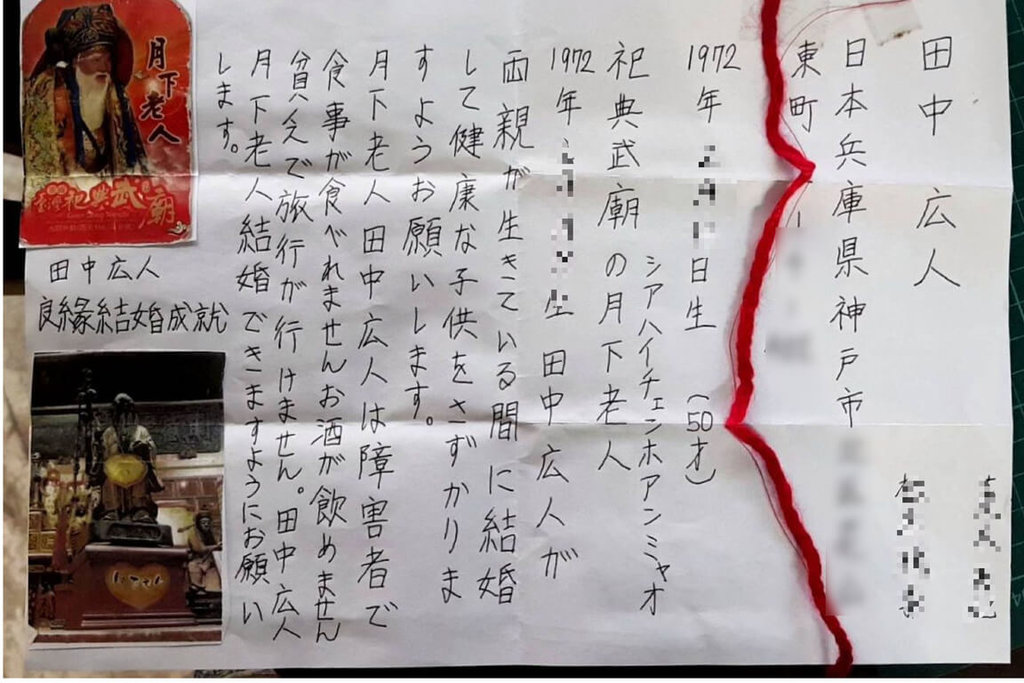 田中 広人
日本兵庫県神戸市
東町
1972年 日生 (50才)
シアハイチェンホアンミャオ
祀典武廟の月下老人
1972年 生 田中広人が
両親が生きている間に結婚
して健康な子供をさずかりま
すようお願いします。
月下老人 田中広人は障害者で
食事が食べれませんお酒が飲めません
貧乏で旅行が行けません。田中広人
月下老人結婚できますようにお願い
します。
月下老人
祀典武廟
田中広人
良縁結婚成就